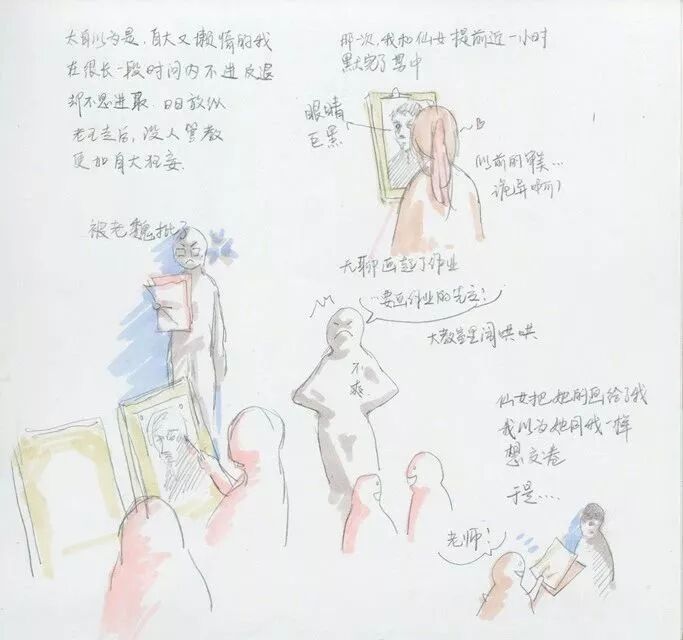 太自以为是，自大又懒惰的我
在很长一段时间内不进反退
却不思进取，日日放纵
老王走后，没人管教
更加自大狂妄.
被老魏批了
那次，我和仙女提前近一小时
默完了集中
眼睛
巨黑
以前的审美...
诡异啊！
无聊画起了作业
"要画作业的先交！
大教室里闹哄哄
不爽
仙女把她的画给了我
我以为她同我一样
想交卷
于是....
老师！